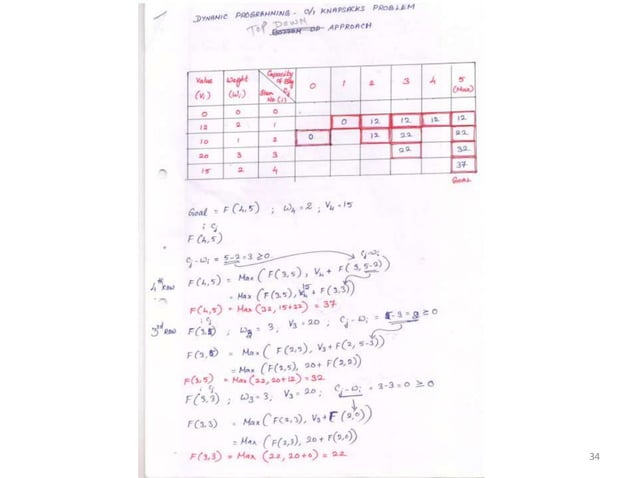 DYNAMIC PROGRAMMING - 0/1 KNAPSACKS PROBLEM
TOP DOWN
BOTTOM UP APPROACH
Value (Vi) Weight (Wi) Capacity of Bag Cj Item No (i) 0 1 2 3 4 5 (Max)
0 0 0
12 2 1 0 12 12 12 12
10 1 2 0 12 22 22
20 3 3 22 32
15 2 4 37
GOAL
Goal = F(4,5) ; W4 = 2 ; V4 = 15
i Cj
F(4,5)
Cj-Wi = 5-2 = 3 ≥ 0 Cj-Wi
4th Row F(4,5) = Max (F(3,5), V4 + F(3,5-2))
= Max (F(3,5), V4 15 + F(3,3))
F(4,5) = Max (32, 15+22) = 37
i Cj
3rd Row F(3,5) ; W3 = 3, V3 = 20 ; Cj-Wi = 5-3 = 2 ≥ 0
F(3,5) = Max (F(2,5), V3 + F(2,5-3))
= Max (F(2,5), 20 + F(2,2))
F(3,5) = Max (22, 20+12) = 32
i Cj
F(3,3) ; W3 = 3, V3 = 20, Cj-Wi = 3-3 = 0 ≥ 0
F(3,3) = Max (F(2,3), V3 + F(2,0))
= Max (F(2,3), 20 + F(2,0))
F(3,3) = Max (22, 20+0) = 22
34